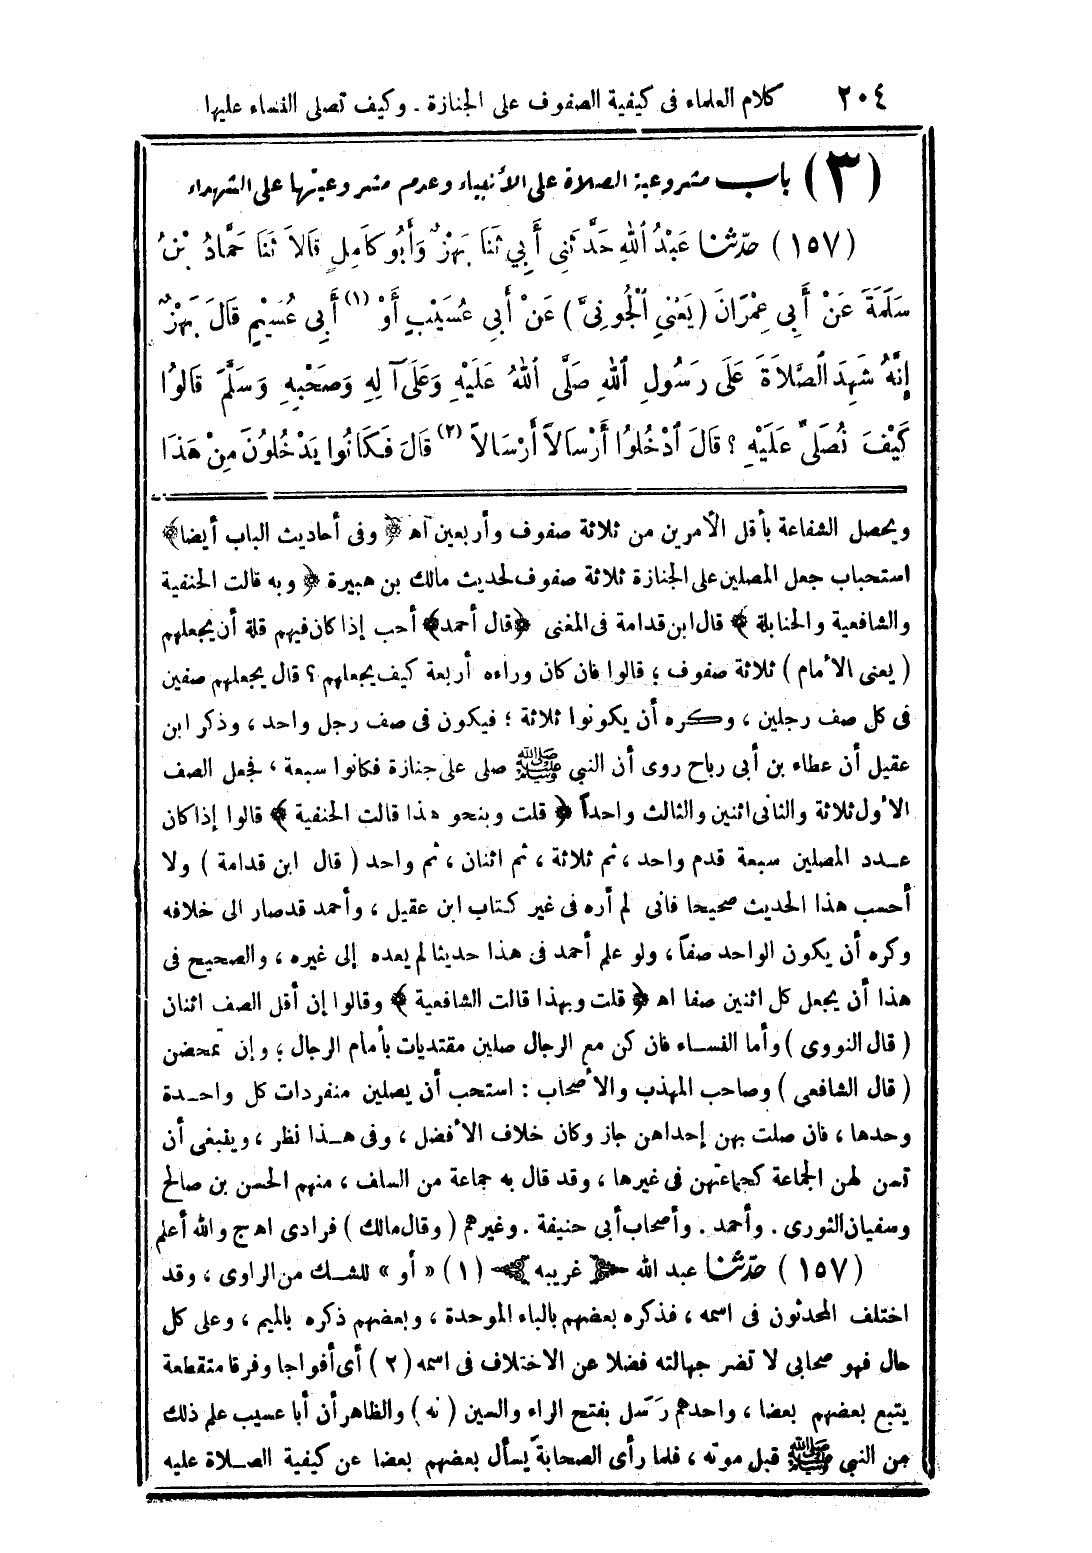 ٢٠٤ كلام العلماء فى كيفية الصفوف على الجنازة . وكيف تصلى النساء عليها
(٣) باب مشروعية الصلاة على الأنبياء وعدم مشروعيتها على الشهداء
(١٥٧) حدّثنا عَبْدُ اللهِ حَدَّثَنِى أَبِي ثَنَا بَهْزٌ وَأَبُو كَامِلٍ قَالاَ ثَنَا حَمَّادُ بْنُ
سَلَمَةَ عَنْ أَبِي عِمْرَانَ (يَعْنِي الْجُونِيَّ) عَنْ أَبِي عُسَيْبٍ أَوْ (١) أَبِي عُسَيْمٍ قَالَ بَهْزٌ
إِنَّهُ شَهِدَ الصَّلاَةَ عَلَى رَسُولِ اللهِ صَلَّى اللهُ عَلَيْهِ وَعَلَى آلِهِ وَصَحْبِهِ وَسَلَّمَ قَالُوا
كَيْفَ نُصَلِّي عَلَيْهِ ؟ قَالَ ادْخُلُوا أَرْسَالاً أَرْسَالاً (٢) قَالَ فَكَانُوا يَدْخُلُونَ مِنْ هَذَا
ويحصل الشفاعة بأقل الأمرين من ثلاثة صفوف وأربعين اهـ ﴿ وفى أحاديث الباب أيضا ﴾
استحباب جعل المصلين على الجنازة ثلاثة صفوف لحديث مالك بن هبيرة ﴿ وبه قالت الحنفية
والشافعية والحنابلة ﴾ قال ابن قدامة فى المغنى ﴿ قال أحمد ﴾ أحب إذا كان فيهم قلة أن يجعلهم
( يعنى الأمام ) ثلاثة صفوف ؛ قالوا فان كان وراءه أربعة كيف يجعلهم ؟ قال يجعلهم صفين
فى كل صف رجلين ، وكره أن يكونوا ثلاثة ؛ فيكون فى صف رجل واحد ، وذكر ابن
عقيل أن عطاء بن أبى رباح روى أن النبي ﷺ صلى على جنازة فكانوا سبعة ، فجعل الصف
الأول ثلاثة والثانى اثنين والثالث واحداً ﴿ قلت وبنحو هذا قالت الحنفية ﴾ قالوا إذا كان
عدد المصلين سبعة قدم واحد ، ثم ثلاثة ، ثم اثنان ، ثم واحد ( قال ابن قدامة ) ولا
أحسب هذا الحديث صحيحا فانى لم أره فى غير كتاب ابن عقيل ، وأحمد قد صار الى خلافه
وكره أن يكون الواحد صفاً ، ولو علم أحمد فى هذا حديثا لم يعده إلى غيره ، والصحيح فى
هذا أن يجعل كل اثنين صفا اهـ ﴿ قلت وبهذا قالت الشافعية ﴾ وقالوا إن أقل الصف اثنان
( قال النووى ) وأما النساء فان كن مع الرجال صلين مقتديات بأمام الرجال ؛ وإن تمحضن
( قال الشافعى ) وصاحب المهذب والأصحاب : استحب أن يصلين منفردات كل واحدة
وحدها ، فان صلت بهن إحداهن جاز وكان خلاف الأفضل ، وفى هذا نظر ، وينبغى أن
تسن لهن الجماعة كجماعتهن فى غيرها ، وقد قال به جماعة من السلف ، منهم الحسن بن صالح
وسفيان الثورى . وأحمد . وأصحاب أبى حنيفة . وغيرهم ( وقال مالك ) فرادى اهـ ج والله أعلم
(١٥٧) حدّثنا عبد الله غريبه (١) « أو » للشك من الراوى ، وقد
اختلف المحدثون فى اسمه ، فذكره بعضهم بالباء الموحدة ، وبعضهم ذكره بالميم ، وعلى كل
حال فهو صحابى لا تضر جهالته فضلا عن الاختلاف فى اسمه (٢) أى أفواجا وفرقا متقطعة
يتبع بعضهم بعضا ، واحدهم رَسَل بفتح الراء والسين (نه) والظاهر أن أبا عسيب علم ذلك
من النبي ﷺ قبل موته ، فلما رأى الصحابة يسأل بعضهم بعضا عن كيفية الصلاة عليه